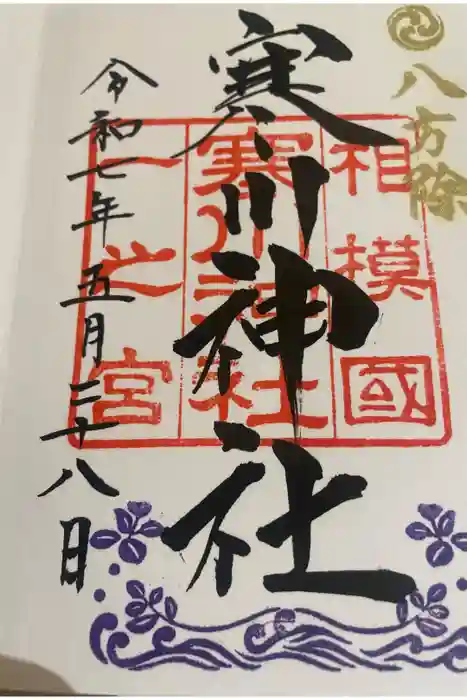 八方除
相模國
寒川神社
一之宮
寒川神社
令和七年五月二十八日